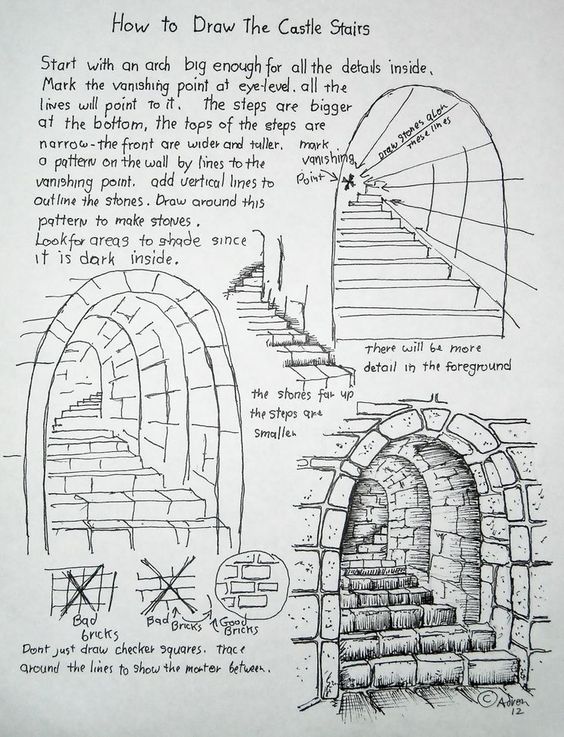 How to Draw The Castle Stairs
Start with an arch big enough for all the details inside.
Mark the vanishing point at eye-level. all the
lives will point to it. The steps are bigger
at the bottom, the tops of the steps are
narrow-the front are wider and taller.
a pattern on the wall by lines to the
vanishing point. add vertical lines to
outline the stones. Draw around this
pattern to make stones.
Look for areas to shade since
it is dark inside.
mark
vanishing
Point
Draw stones along
these lines
There will be more
detail in the foreground
the stones far up
the steps are
smaller
Bad
bricks
Bad
Bricks
Good
Bricks
Dont just draw checker squares. trace
around the lines to show the morter between.
© Adron
12